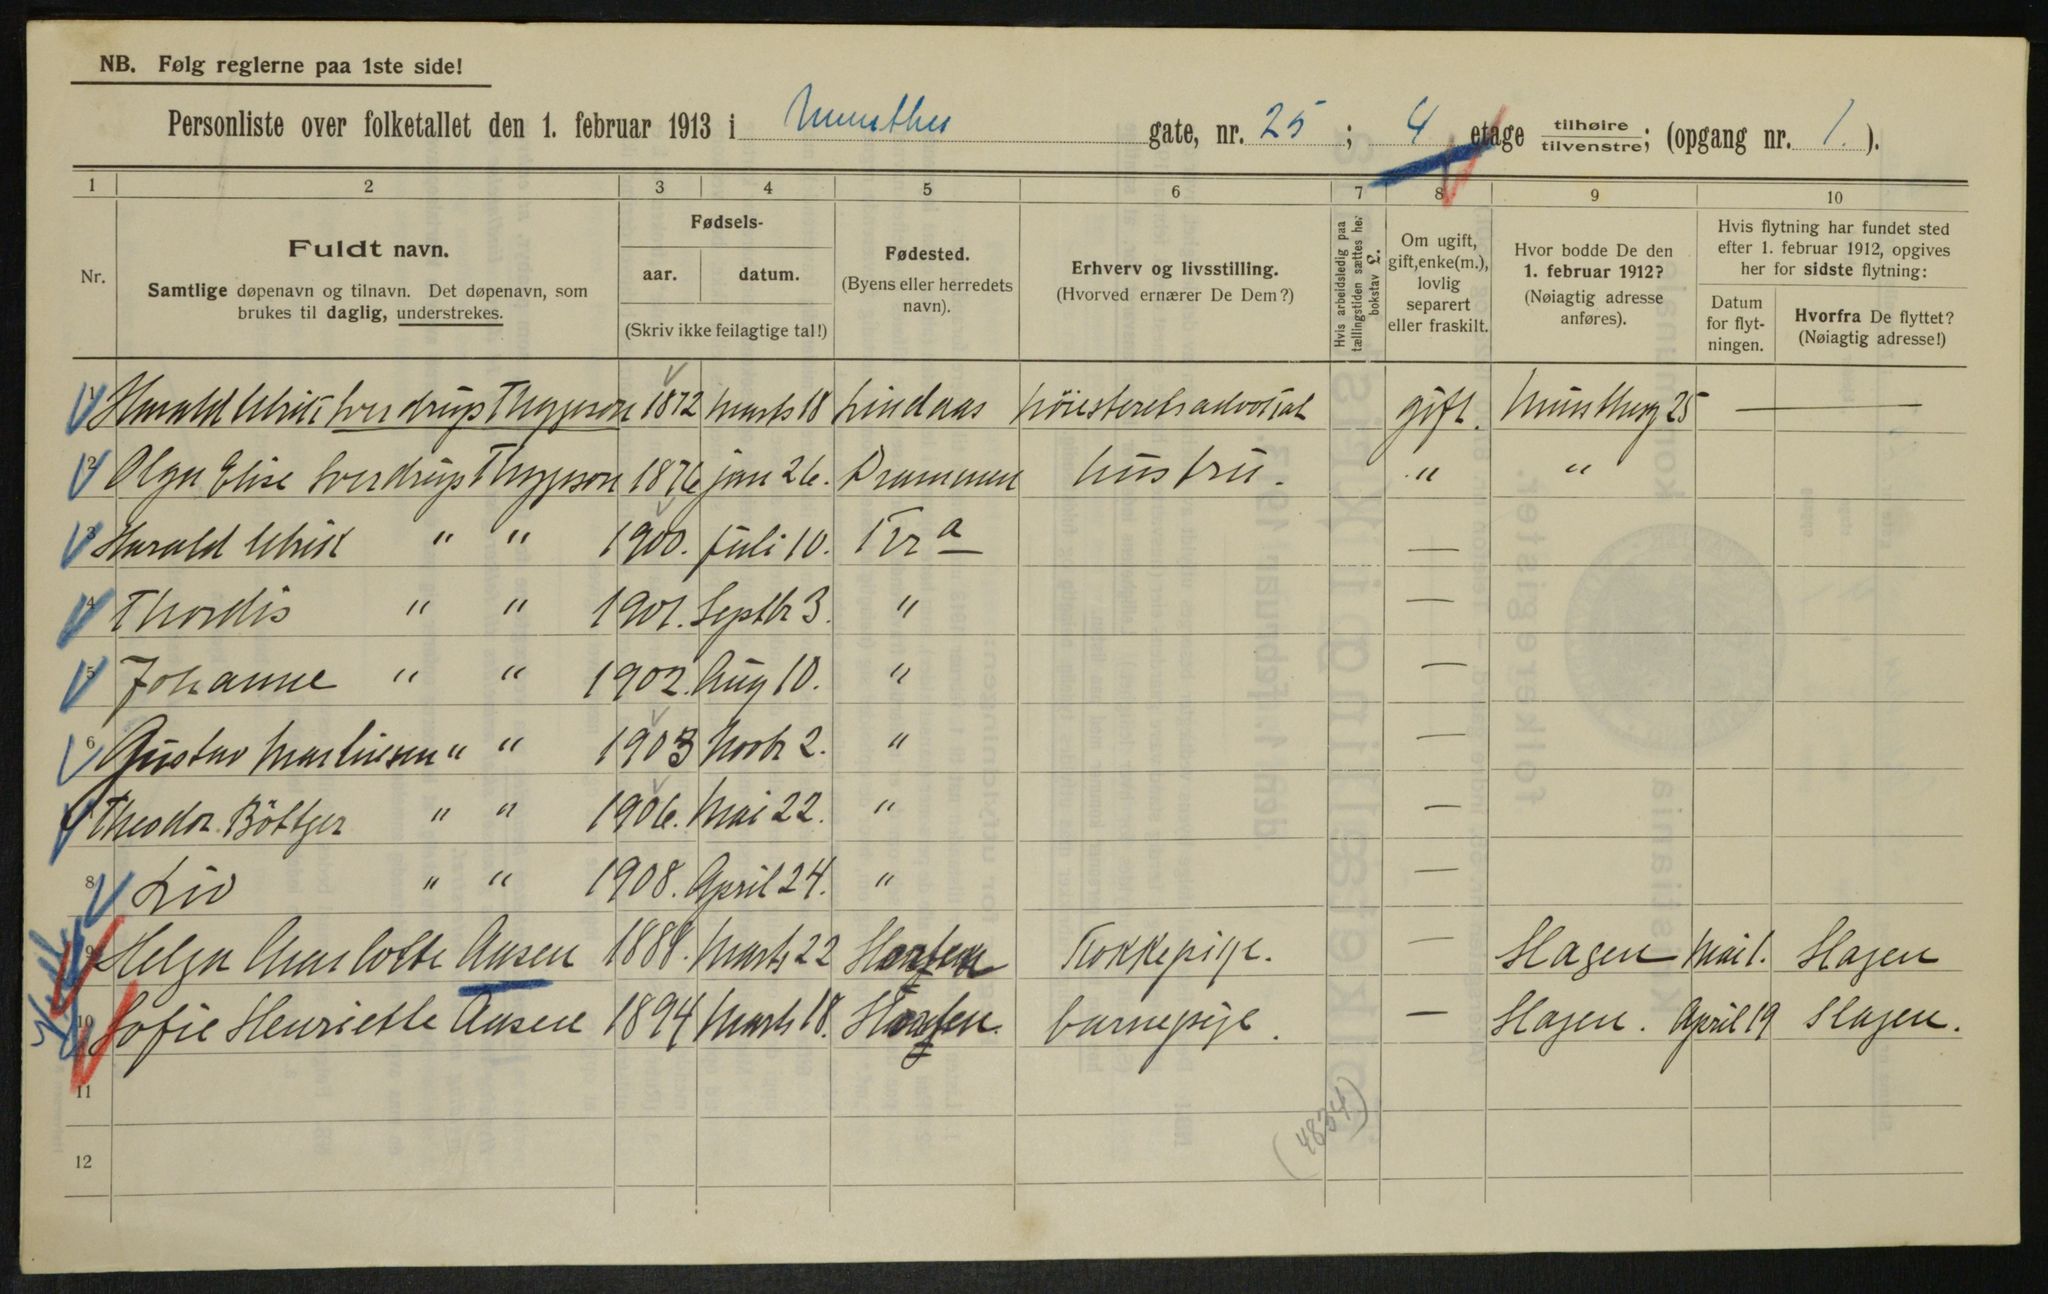 NB. Følg reglerne paa 1ste side!
Personliste over folketallet den 1. februar 1913 i Munthes gate, nr. 25 ; 4 etage tilhøire / tilvenstre ; (opgang nr. 1. ).
1 2 3 4 5 6 7 8 9 10
Nr.
Fuldt navn.
Samtlige døpenavn og tilnavn. Det døpenavn, som
brukes til daglig, understrekes.
Fødsels-
aar. datum.
(Skriv ikke feilagtige tal!)
Fødested.
(Byens eller herredets
navn).
Erhverv og livsstilling.
(Hvorved ernærer De Dem?)
Hvis arbeidsledig paa
tællingstiden sættes her
bokstav L.
Om ugift,
gift, enke(m.),
lovlig
separert
eller fraskilt.
Hvor bodde De den
1. februar 1912?
(Nøiagtig adresse
anføres).
Hvis flytning har fundet sted
efter 1. februar 1912, opgives
her for sidste flytning:
Datum
for flyt-
ningen.
Hvorfra De flyttet?
(Nøiagtig adresse!)
1 Harald Ulrik Sverdrup Thygeson 1872 Marts 18 Lindaas Höiesteretsadvokat gift. Munthesg 25 — —
2 Olga Elise Sverdrup Thygeson 1876 jan 26. Drammen hustru. " "
3 Harald Ulrik " " 1900. Juli 10. Kra —
4 Thordis " " 1901. Septbr 3. " —
5 Johanne " " 1902. Aug 10. " —
6 Gustav Martinsen " " 1903 Novbr 2. " —
7 Theodor Böttger " " 1906. Mai 22. " —
8 Liv " " 1908. April 24. " —
9 Helga Charlotte Aasen 1888. Marts 22 Horten Kokkepige. — Slagen Mai 1. Slagen
10 Sofie Henriette Aasen 1894 Marts 18. Horten. barnepige. — Slagen. April 19 Slagen.
11
12
(4834)